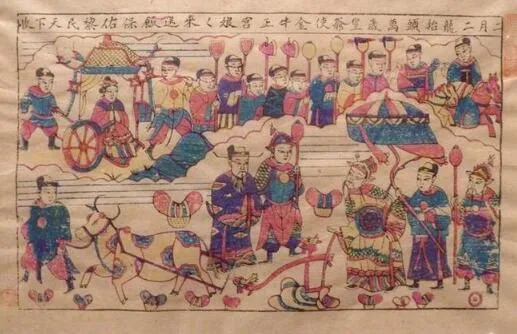 二月二龍抬頭萬歲皇爺使金牛正宮娘々来送飯保佑黎民天下收